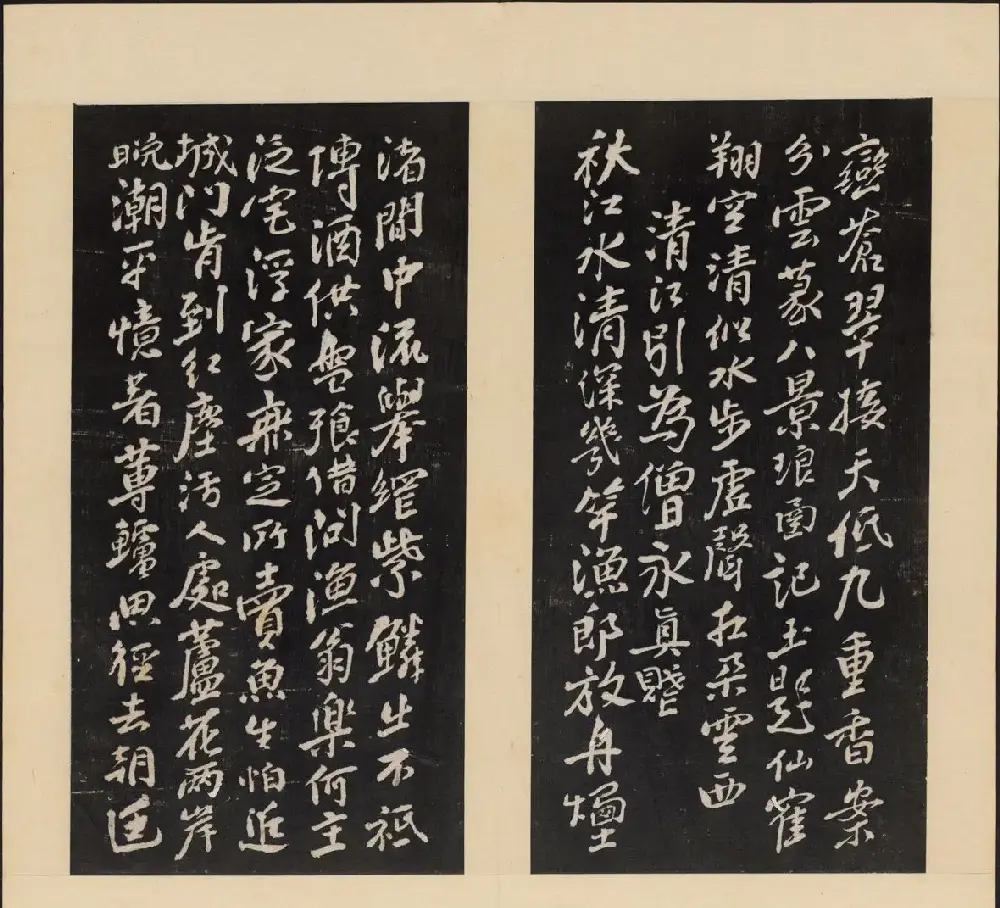 巒蒼翠接天低九重香案
分雲篆八景琅函記玉題仙窑
翔空清似水步虛聲在朵雲西
清江引為僧永真賦
秋江水清深幾竿漁郎放舟煙
渚間中流舉網紫鱗出不祇
傳酒供盤飧借問漁翁樂何主
泛宅浮家無定所賣魚生怕近
城門肯到紅塵汚人處蘆花兩岸
晚潮平憶著蓴鱸興徑去朝廷